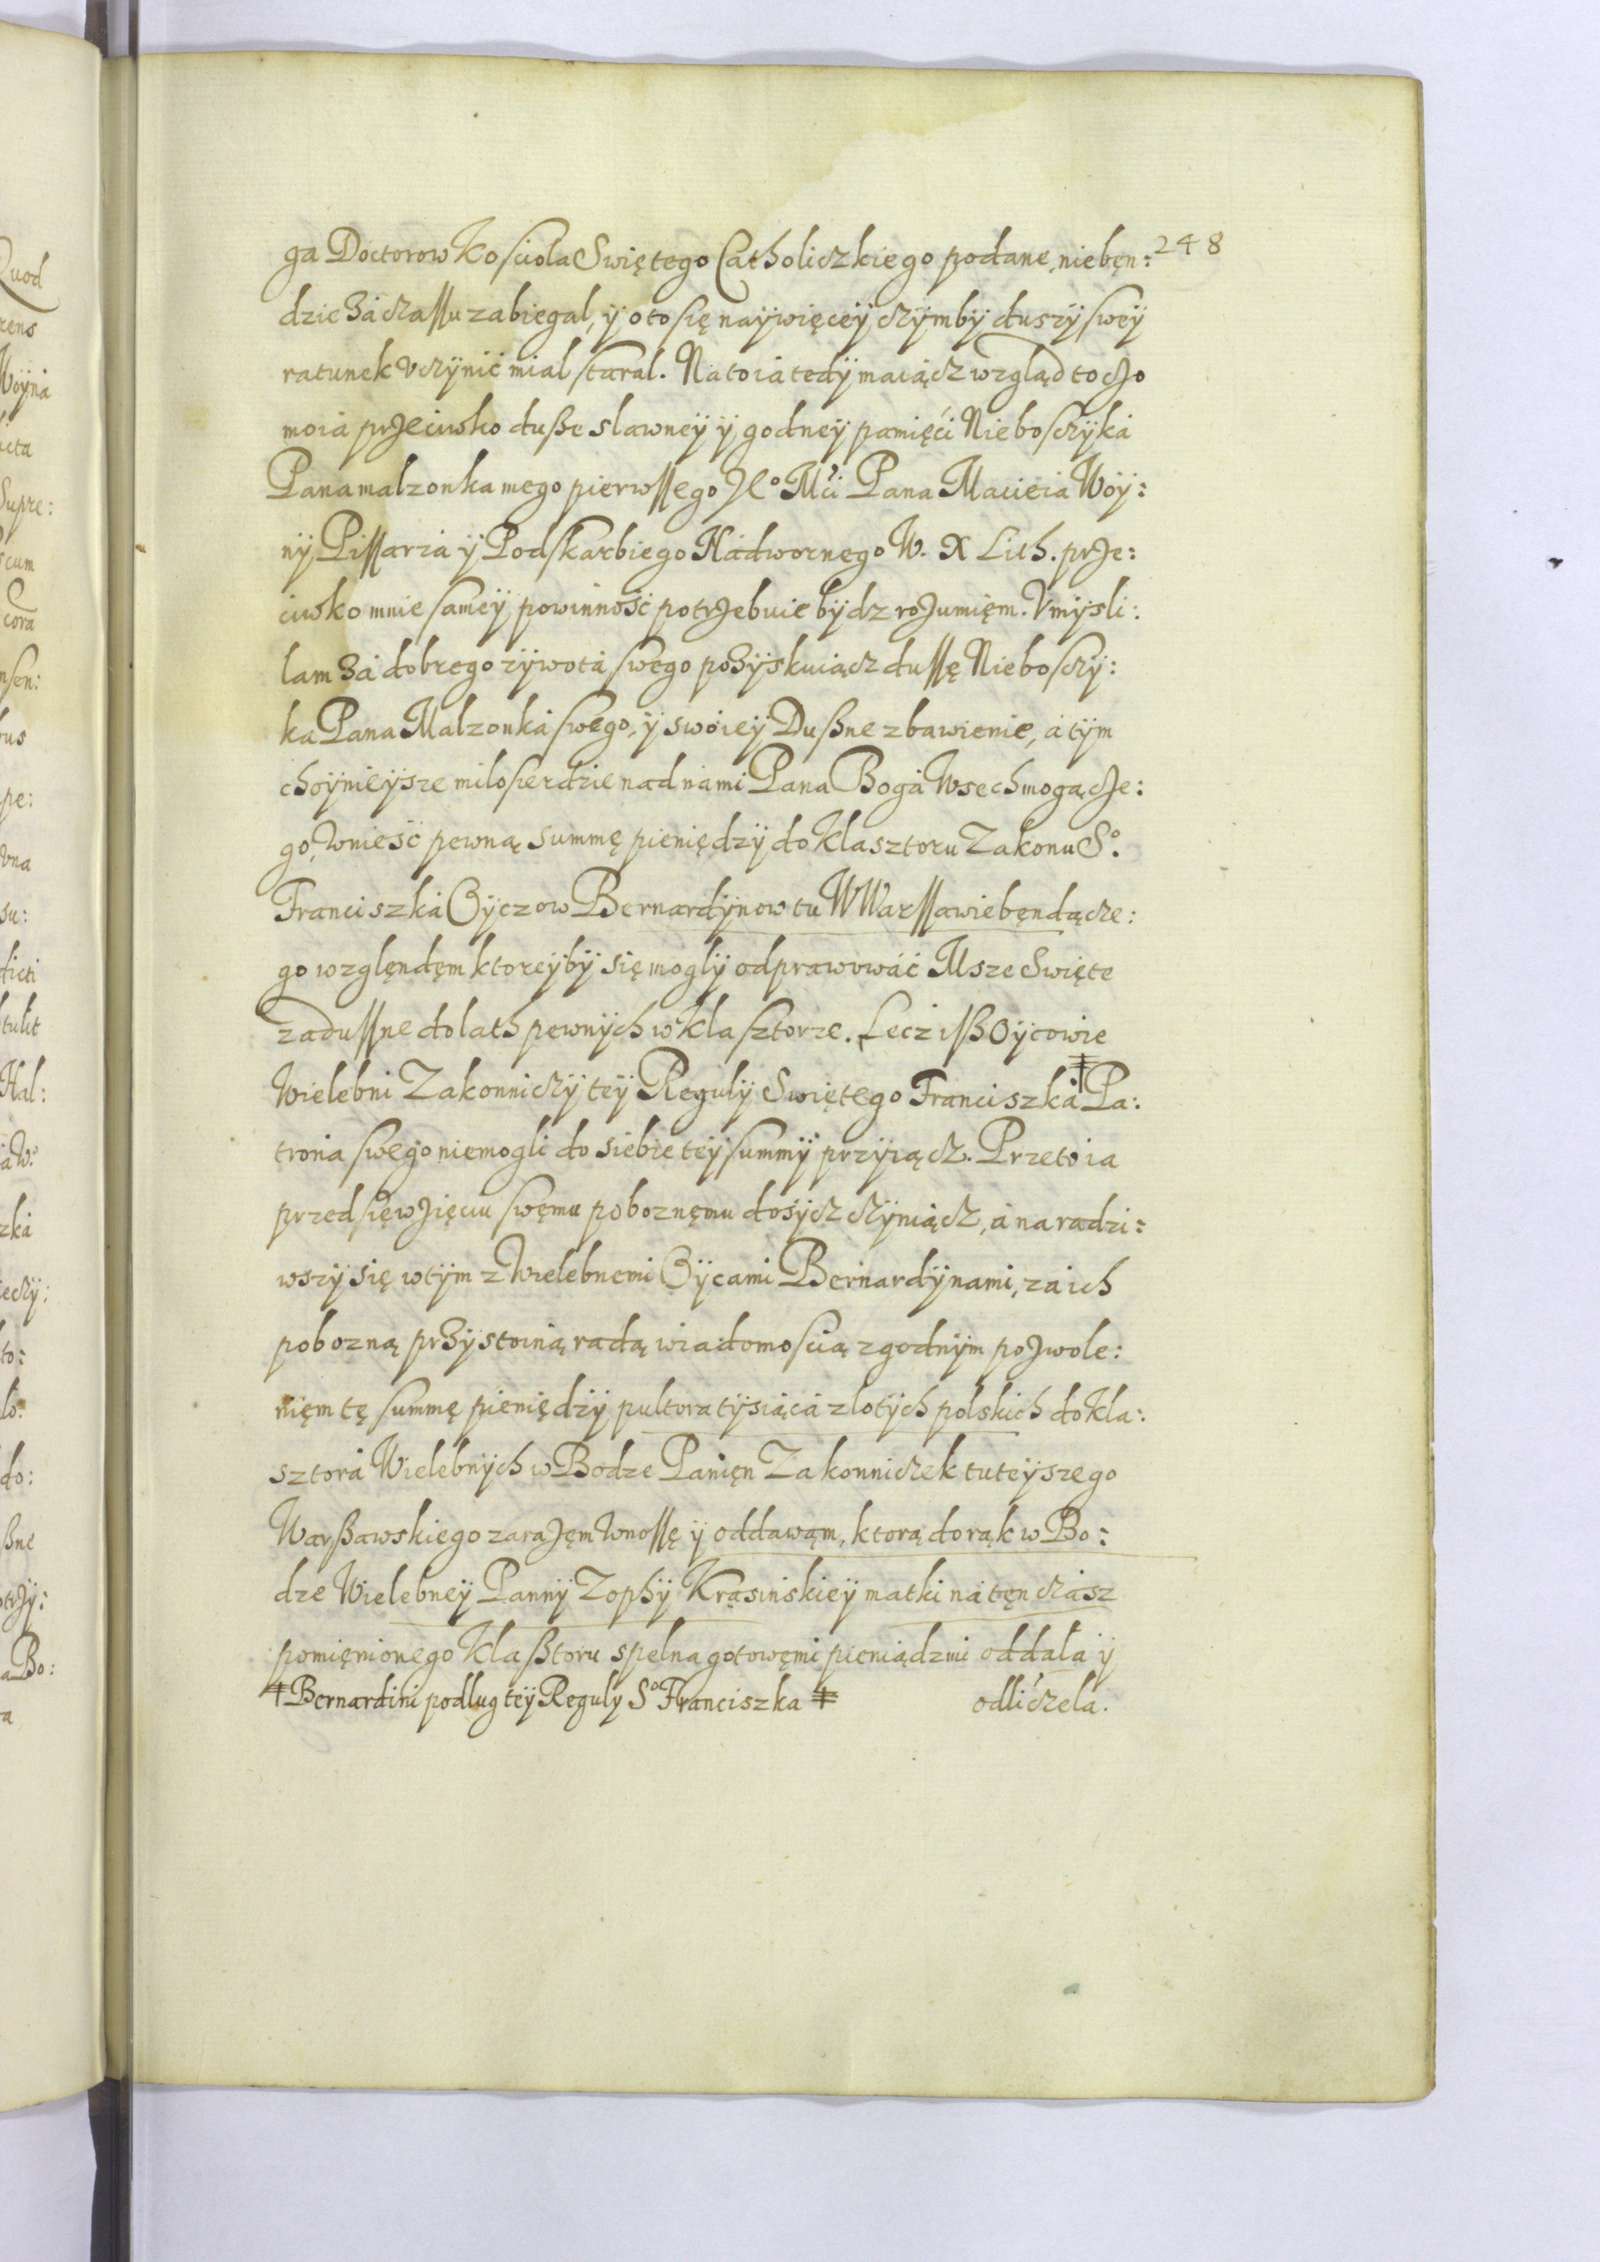 248
ga Doctorow Kosciola Swiętego Catholiczkiego podane, niebęn:
dzie zá czassu zabiegal, ÿ oto się naÿwięceÿ czÿmbÿ duszÿ sweÿ
ratunek vczÿnić mial staral. Na to iá tedÿ maiącz wzgląd to czo
moiá przeciwko dusze slawneÿ ÿ godneÿ pamięći Nieboszczÿká
Pana malzonka mego pierwssego Jeº Mći Pana Macieiá Woÿ:
nÿ Pissarzá ÿ Podskarbiego Nádwornego W. X Lith. prze:
ciwko mnie sameÿ powinność potrzebuie bÿdz rozumięm. Vmÿsli:
lam zá dobrego zÿwotá swego pozÿskuiącz dussę Nieboszczÿ:
ka Pana Malzonká swego, ÿ swoieÿ Duszne zbawienie, á tÿm
choÿnieÿsze milosierdzie nad námi Pana Bogá Wsechmogącze:
go, wnieść pewną summę pieniędzÿ do Klasztoru Zakonu Sº.
Franciszká Oÿczow Bernardÿnow tu W Warssawie będącze:
go względęm ktoreÿbÿ się moglÿ odprawowáć Msze Swięte
zadussne do lath pewnÿch w klasztorze. Lecz isz Oÿcowie
Wielebni Zakonniczÿ teÿ Regulÿ Swiętego Franciszká Pa:
troná swego niemogli do siebie teÿ summÿ przÿiącz. Przeto ia
przedsięwzięciu swęmu poboznęmu dosÿcz czÿniącz, á naradzi:
wszÿ się w tÿm z Wielebnemi Oÿcami Bernardÿnami, za ich
pobozną przÿstoiną radą wiadomoscią zgodnÿm pozwole:
nięm tę summę pieniędzÿ pultora tÿsiącá zlotÿch polskich do Kla:
sztorá Wielebnÿch w Bodze Panięn Zakonniczek tuteÿszego
Warszawskiego zarazęm wnossę ÿ oddawąm, ktorą do rąk w Bo:
dze Wielebneÿ Pannÿ Zophÿ Krasinskieÿ matki ná tęn czász
pomięnionego Klasztoru spelna gotowęmi pieniądzmi oddala ÿ
ǂ Bernardini podlug teÿ Reguly Sº Franciszka ǂ
odliczela.